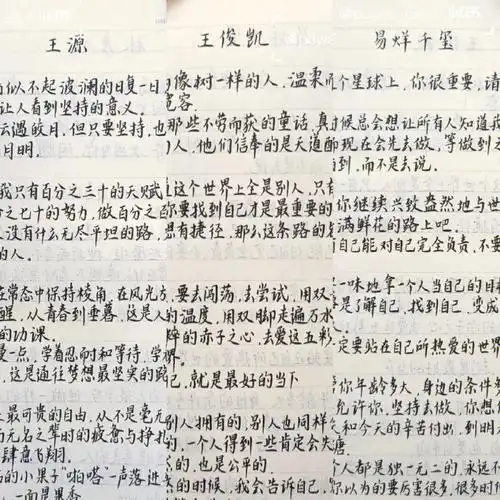 王源
似不起波澜的日复一日
让人看到坚持的意义.
云遇皎月,但只要坚持,也
月明.
我只有百分之三十的天赋
之七十的努力,做百分之百
没有什么无尽平坦的路,
的人.
在常态中保持棱角,在风光
醒,从青春到垂暮,这是人
的功课.
一点,学着忍耐和等待,学
这是通往梦想最坚实的路
最可贵的自由,从不是毫无
无名之辈时的疲惫与挣扎
肆意飞翔.
的小果子"啪嗒"一声落进
一面是果香
王俊凯
像树一样的人,温柔
宽容.
那些不劳而获的童话,真
人,他们信奉的是天道酬
这个世界上全是别人,只有
你要找到自己才是最重要的
想有捷径,那么这条路的
要去闯荡,去尝试,用双
的温度,用双脚走遍万水
的赤子之心,去爱这五彩
界.
己,就是最好的当下
别人拥有的,别人也同样
的,一个人得到一些肯定会失
的,也是公平的.
的时候,我会告诉自己,
易烊千玺
个星球上,你很重要,请
候总会想让所有人知道我
现在会先去做,等做到之
到,而不是去说.
你继续兴致盎然地与世
满鲜花的路上吧.
自己能对自己完全负责,不要
一味地拿一个人当自己的目标
是了解自己,找到自己,变成
定要站在自己所热爱的世界
你年龄多大,身边的条件
允许你,坚持去做,你想
和今天的辛苦付出,到明
唐.
人都是独一无二的,永远不
你以为的要厉害很多,很多时